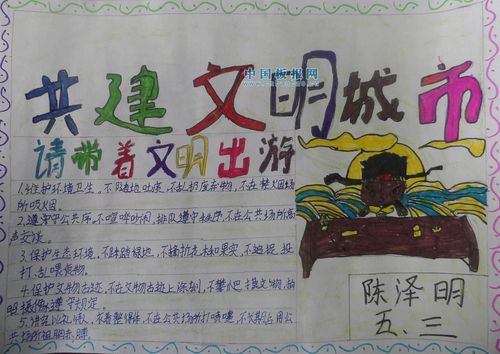 中国板报网
共建文明城市
请带着文明出游
1、维护环境卫生。不随地吐痰,不乱扔废弃物,不在禁烟场
所吸烟。
2、遵守公共序。不喧哗吵闹,排队遵守秩序,不在公共场所高
声交谈。
3、保护生态环境。不踩踏绿地,不摘折花木和果实,不追捉、投
打、乱喂动物。
4、保护文物古迹。不在文物古迹上涂刻,不攀爬
拍
摄像遵守规定。
5、衣着整
不在公共场所打喷嚏
公
共场所袒胸赤膊
陈泽明
五、三